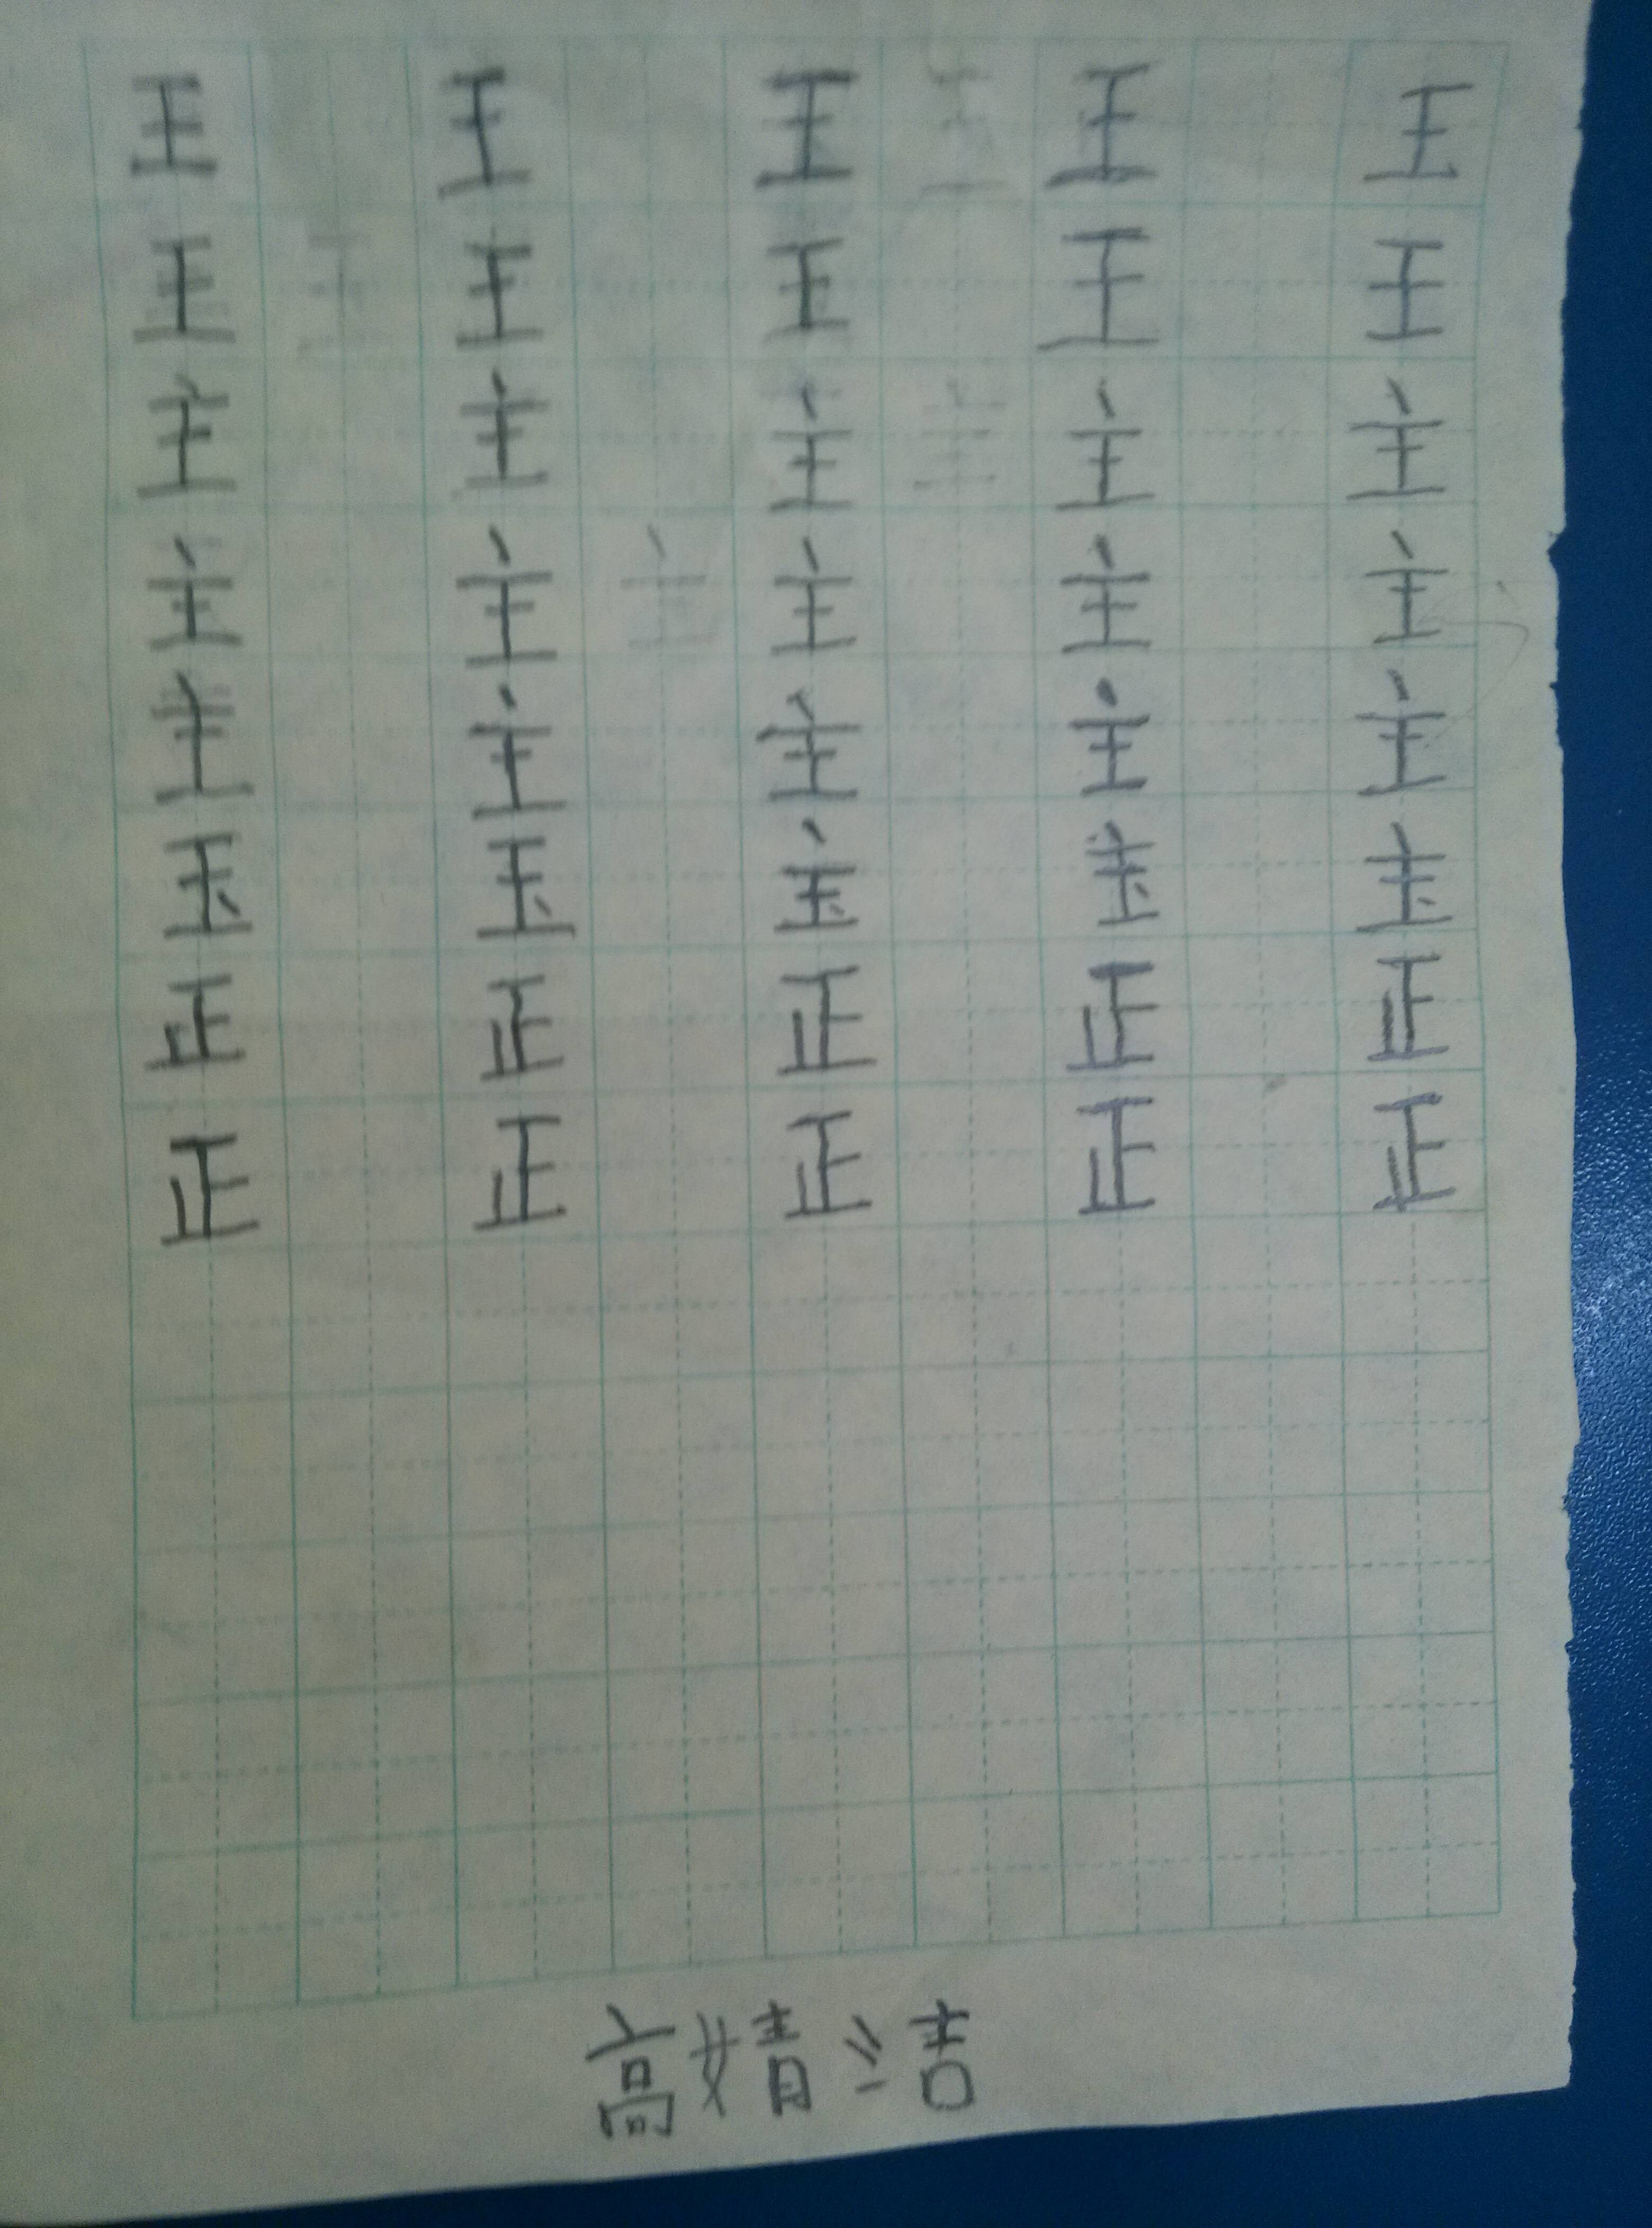 王 王 王 王 王
王 王 王 王 王
主 主 主 主 主
主 主 主 主 主
主 主 主 主 主
玉 玉
正 正 正 正 正
正 正 正 正 正
高婧洁